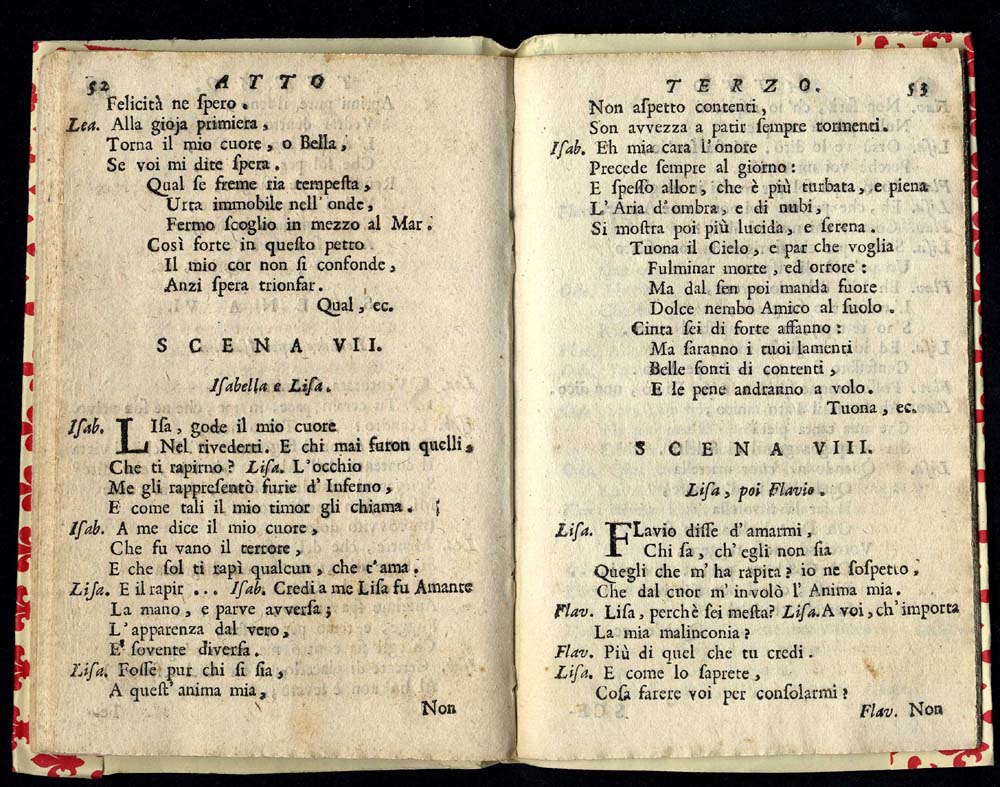 52 ATTO
Felicità ne ſpero.
Lea. Alla gioja primiera,
Torna il mio cuore, o Bella,
Se voi mi dite ſpera.
Qual ſe freme ria tempeſta,
Urta immobile nell' onde,
Fermo ſcoglio in mezzo al Mar.
Così forte in queſto petto
Il mio cor non ſi confonde,
Anzi ſpera trionfar.
Qual, ec.
SCENA VII.
Iſabella e Liſa.
Iſab. LIſa, gode il mio cuore
Nel rivederti. E chi mai furon quelli,
Che ti rapirno? Liſa. L'occhio
Me gli rappreſentò furie d' Inferno,
E come tali il mio timor gli chiama.
Iſab. A me dice il mio cuore,
Che fu vano il terrore,
E che ſol ti rapì qualcun, che t'ama.
Liſa. E il rapir ... Iſab. Credi a me Liſa fu Amante
La mano, e parve avverſa;
L'apparenza dal vero,
E' ſovente diverſa.
Liſa. Foſſe pur chi ſi ſia,
A queſt' anima mia,
Non
TERZO. 53
Non aſpetto contenti,
Son avvezza a patir ſempre tormenti.
Iſab. Eh mia cara l'onore
Precede ſempre al giorno:
E ſpeſſo allor, che è più turbata, e piena
L'Aria d'ombra, e di nubi,
Si moſtra poi più lucida, e ſerena.
Tuona il Cielo, e par che voglia
Fulminar morte, ed orrore:
Ma dal ſen poi manda fuore
Dolce nembo Amico al ſuolo.
Cinta ſei di forte affanno:
Ma ſaranno i tuoi lamenti
Belle fonti di contenti,
E le pene andranno a volo.
Tuona, ec.
SCENA VIII.
Liſa, poi Flavio.
Liſa. FLavio diſſe d'amarmi,
Chi ſa, ch'egli non ſia
Quegli che m' ha rapita? io ne ſoſpetto,
Che dal cuor m'involò l' Anima mia.
Flav. Liſa, perchè ſei meſta? Liſa. A voi, ch'importa
La mia malinconia?
Flav. Più di quel che tu credi.
Liſa. E come lo ſaprete,
Coſa farere voi per conſolarmi?
Flav. Non